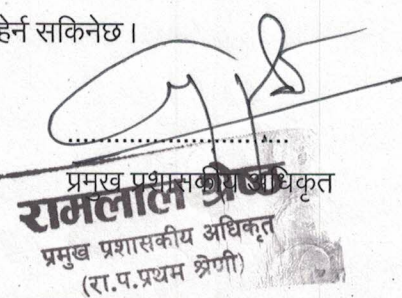 हेर्न सकिनेछ।
..............................
प्रमुख प्रशासकीय अधिकृत
रामलाल श्रेष्ठ
प्रमुख प्रशासकीय अधिकृत
(रा.प.प्रथम श्रेणी)